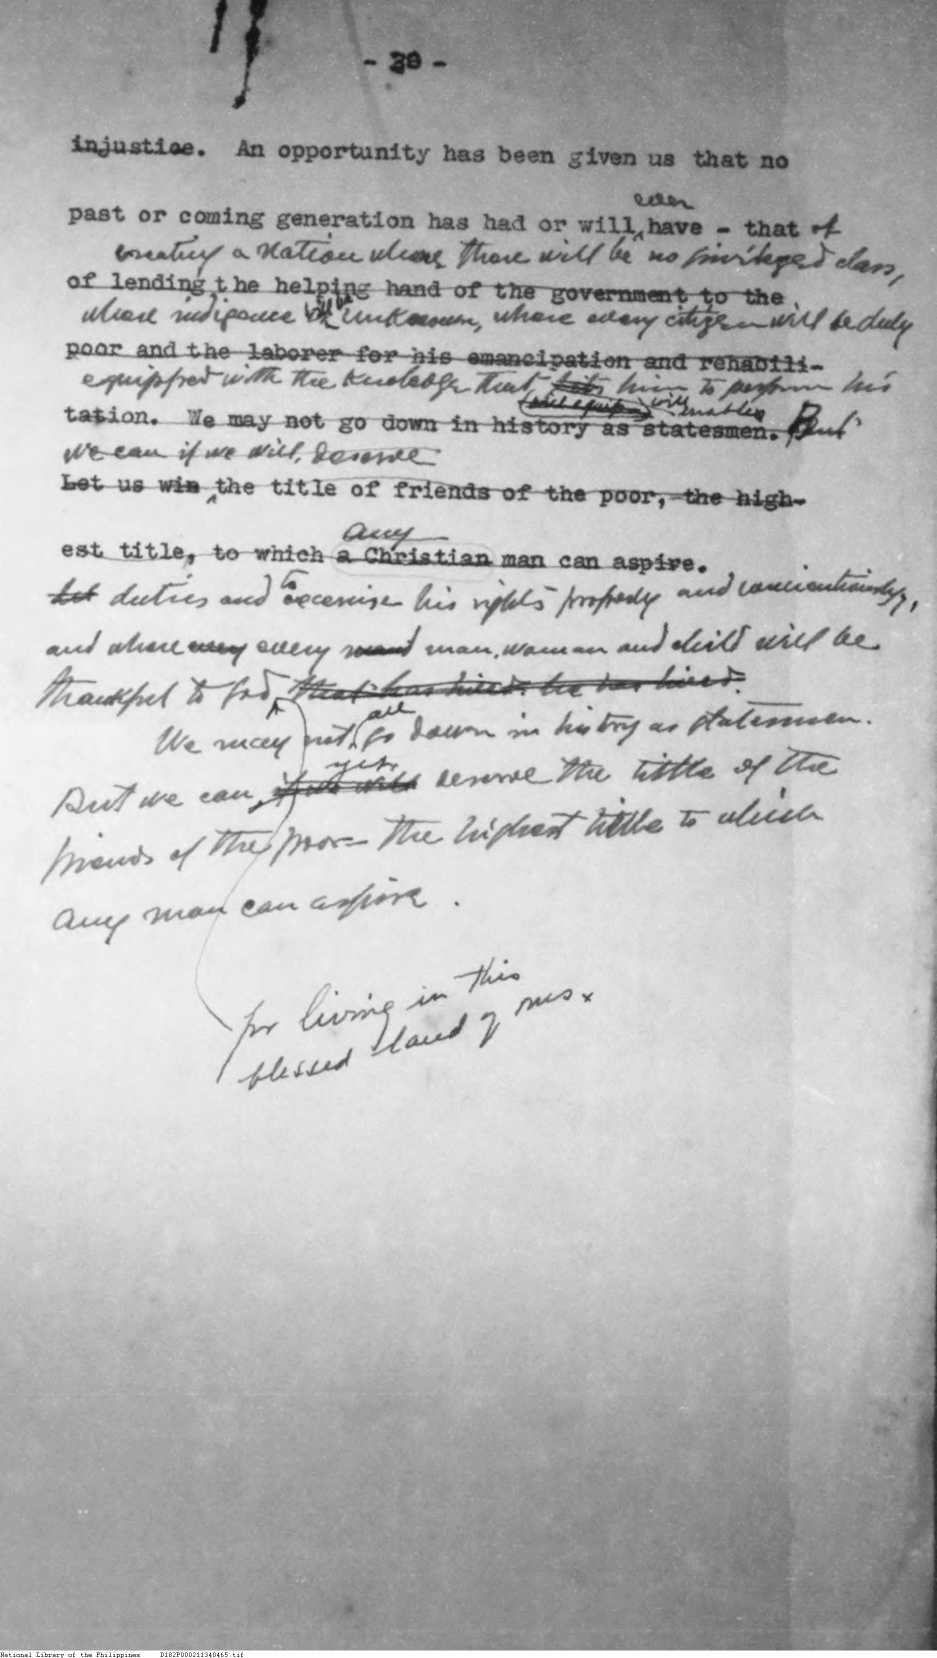 - 30 -
injustice. An opportunity has been given us that no
ever
past or coming generation has had or will have - that of
creating a Nation where there will be no privileged class,
of lending the helping hand of the government to the
where indigence will be unknown, where every citizen will be duly
poor and the laborer for his emancipation and rehabili-
equipped with the knowledge that fits him to perform his
will enable
tation. We may not go down in history as statesmen. But
we can if we will, deserve
Let us win the title of friends of the poor, the high-
any
est title, to which a Christian man can aspire.
duties and to excercise his rights properly and conscientiously,
and where every every man, woman and child will be
thankful to God, that has lived. he has lived.
all
We may not go down in history as statesmen.
yes
But we can, if we will deserve the tittle of the
friends of the poor - the highest tittle to which
any man can aspire.
for living in this
blessed land of ours x
National Library of the Philippines D182P000211340465.tif